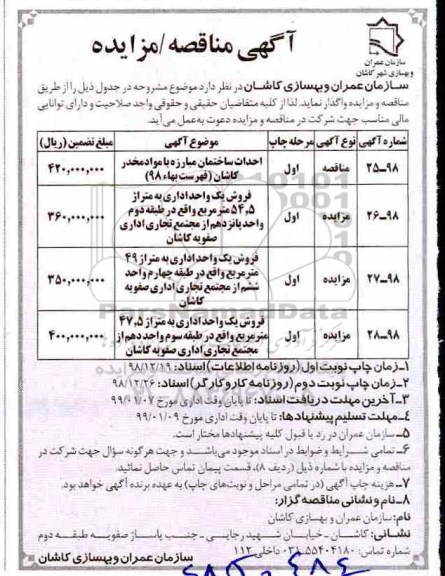 آگهی مناقصه/مزایده
سازمان عمران
و بهسازی شهر کاشان
سازمان عمران و بهسازی کاشان در نظر دارد موضوع مشروحه در جدول ذیل را از طریق
مناقصه و مزایده واگذار نماید. لذا از کلیه متقاضیان حقیقی و حقوقی واجد صلاحیت و دارای توانایی
مالی مناسب جهت شرکت در مناقصه و مزایده دعوت به عمل می آید.
شماره آگهی نوع آگهی مرحله چاپ موضوع آگهی مبلغ تضمین (ریال)
۹۸-۲۵ مناقصه اول احداث ساختمان مبارزه با مواد مخدر کاشان (فهرست بهاء ۹۸) ۴۲۰,۰۰۰,۰۰۰
۹۸-۲۶ مزایده اول فروش یک واحد اداری به متراژ ۵۴,۵ متر مربع واقع در طبقه دوم واحد پانزدهم از مجتمع تجاری اداری صفویه کاشان ۳۶۰,۰۰۰,۰۰۰
۹۸-۲۷ مزایده اول فروش یک واحد اداری به متراژ ۴۹ متر مربع واقع در طبقه چهارم واحد ششم از مجتمع تجاری اداری صفویه کاشان ۳۵۰,۰۰۰,۰۰۰
۹۸-۲۸ مزایده اول فروش یک واحد اداری به متراژ ۴۷,۵ متر مربع واقع در طبقه سوم واحد دهم از مجتمع تجاری اداری صفویه کاشان ۴۰۰,۰۰۰,۰۰۰
۱-زمان چاپ نوبت اول (روزنامه اطلاعات) اسناد: ۹۸/۱۲/۱۹
۲-زمان چاپ نوبت دوم (روزنامه کار و کارگر) اسناد: ۹۸/۱۲/۲۶
۳-آخرین مهلت دریافت اسناد: تا پایان وقت اداری مورخ ۹۹/۰۱/۰۷
۴-مهلت تسلیم پیشنهادها: تا پایان وقت اداری مورخ ۹۹/۰۱/۰۹
۵-سازمان عمران در رد یا قبول کلیه پیشنهادها مختار است.
۶-تمامی شرایط و ضوابط در اسناد موجود می باشد و جهت هرگونه سؤال جهت شرکت در
مناقصه و مزایده با شماره ذیل (ردیف ۸)، قسمت پیمان تماس حاصل نمائید.
۷-هزینه چاپ آگهی (در تمامی مراحل و نوبت های چاپ) به عهده برنده آگهی خواهد بود.
۸-نام و نشانی مناقصه گزار:
نام: سازمان عمران و بهسازی کاشان
نشانی: کاشان - خیابان شهید رجایی - جنب پاساژ صفویه طبقه دوم
شماره تماس: ۵۵۴۰۴۱۸۰-۰۳۱ داخلی ۱۱۲
سازمان عمران و بهسازی کاشان